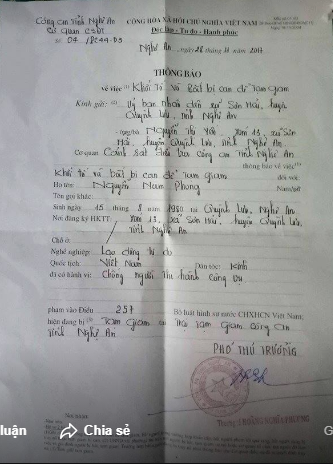 Công an Tỉnh Nghệ An
Cơ quan CSĐT
Số 04 /PC44-Đ3
CỘNG HÒA XÃ HỘI CHỦ NGHĨA VIỆT NAM
Độc lập - Tự do - Hạnh phúc
Nghệ An, ngày 28 tháng 11 năm 2017
THÔNG BÁO
về việc (1) Khởi Tố và Bắt bị can để Tạm Giam
Kính gửi: (2) Uỷ ban nhân dân xã Sơn Hải, huyện
Quỳnh Lưu, Tỉnh Nghệ An
Nguyễn Thị Yến, xóm 13, xã Sơn
Hải, huyện Quỳnh Lưu, Tỉnh Nghệ An.
Cơ quan Cảnh sát điều tra Công an Tỉnh Nghệ An
thông báo về việc
Khởi Tố và bắt bị can để Tạm giam
đối với:
Họ tên Nguyễn Nam Phong Nam/nữ
Tên gọi khác:
Sinh ngày 15 tháng 8 năm 1980 tại Quỳnh Lưu, Nghệ An
Nơi đăng ký HKTT: Xóm 13, xã Sơn Hải, huyện Quỳnh Lưu,
Tỉnh Nghệ An
Chỗ ở:
Nghề nghiệp: Lao động tự do
Quốc tịch: Việt Nam Dân tộc: Kinh
đã có hành vi: Chống người thi hành công vụ
phạm vào Điều 257 Bộ luật hình sự nước CHXHCN Việt Nam;
hiện đang bị (3) Tạm Giam tại Trại Tạm Giam Công an
Tỉnh Nghệ An
PHÓ THỦ TRƯỞNG
luận
Chia sẻ